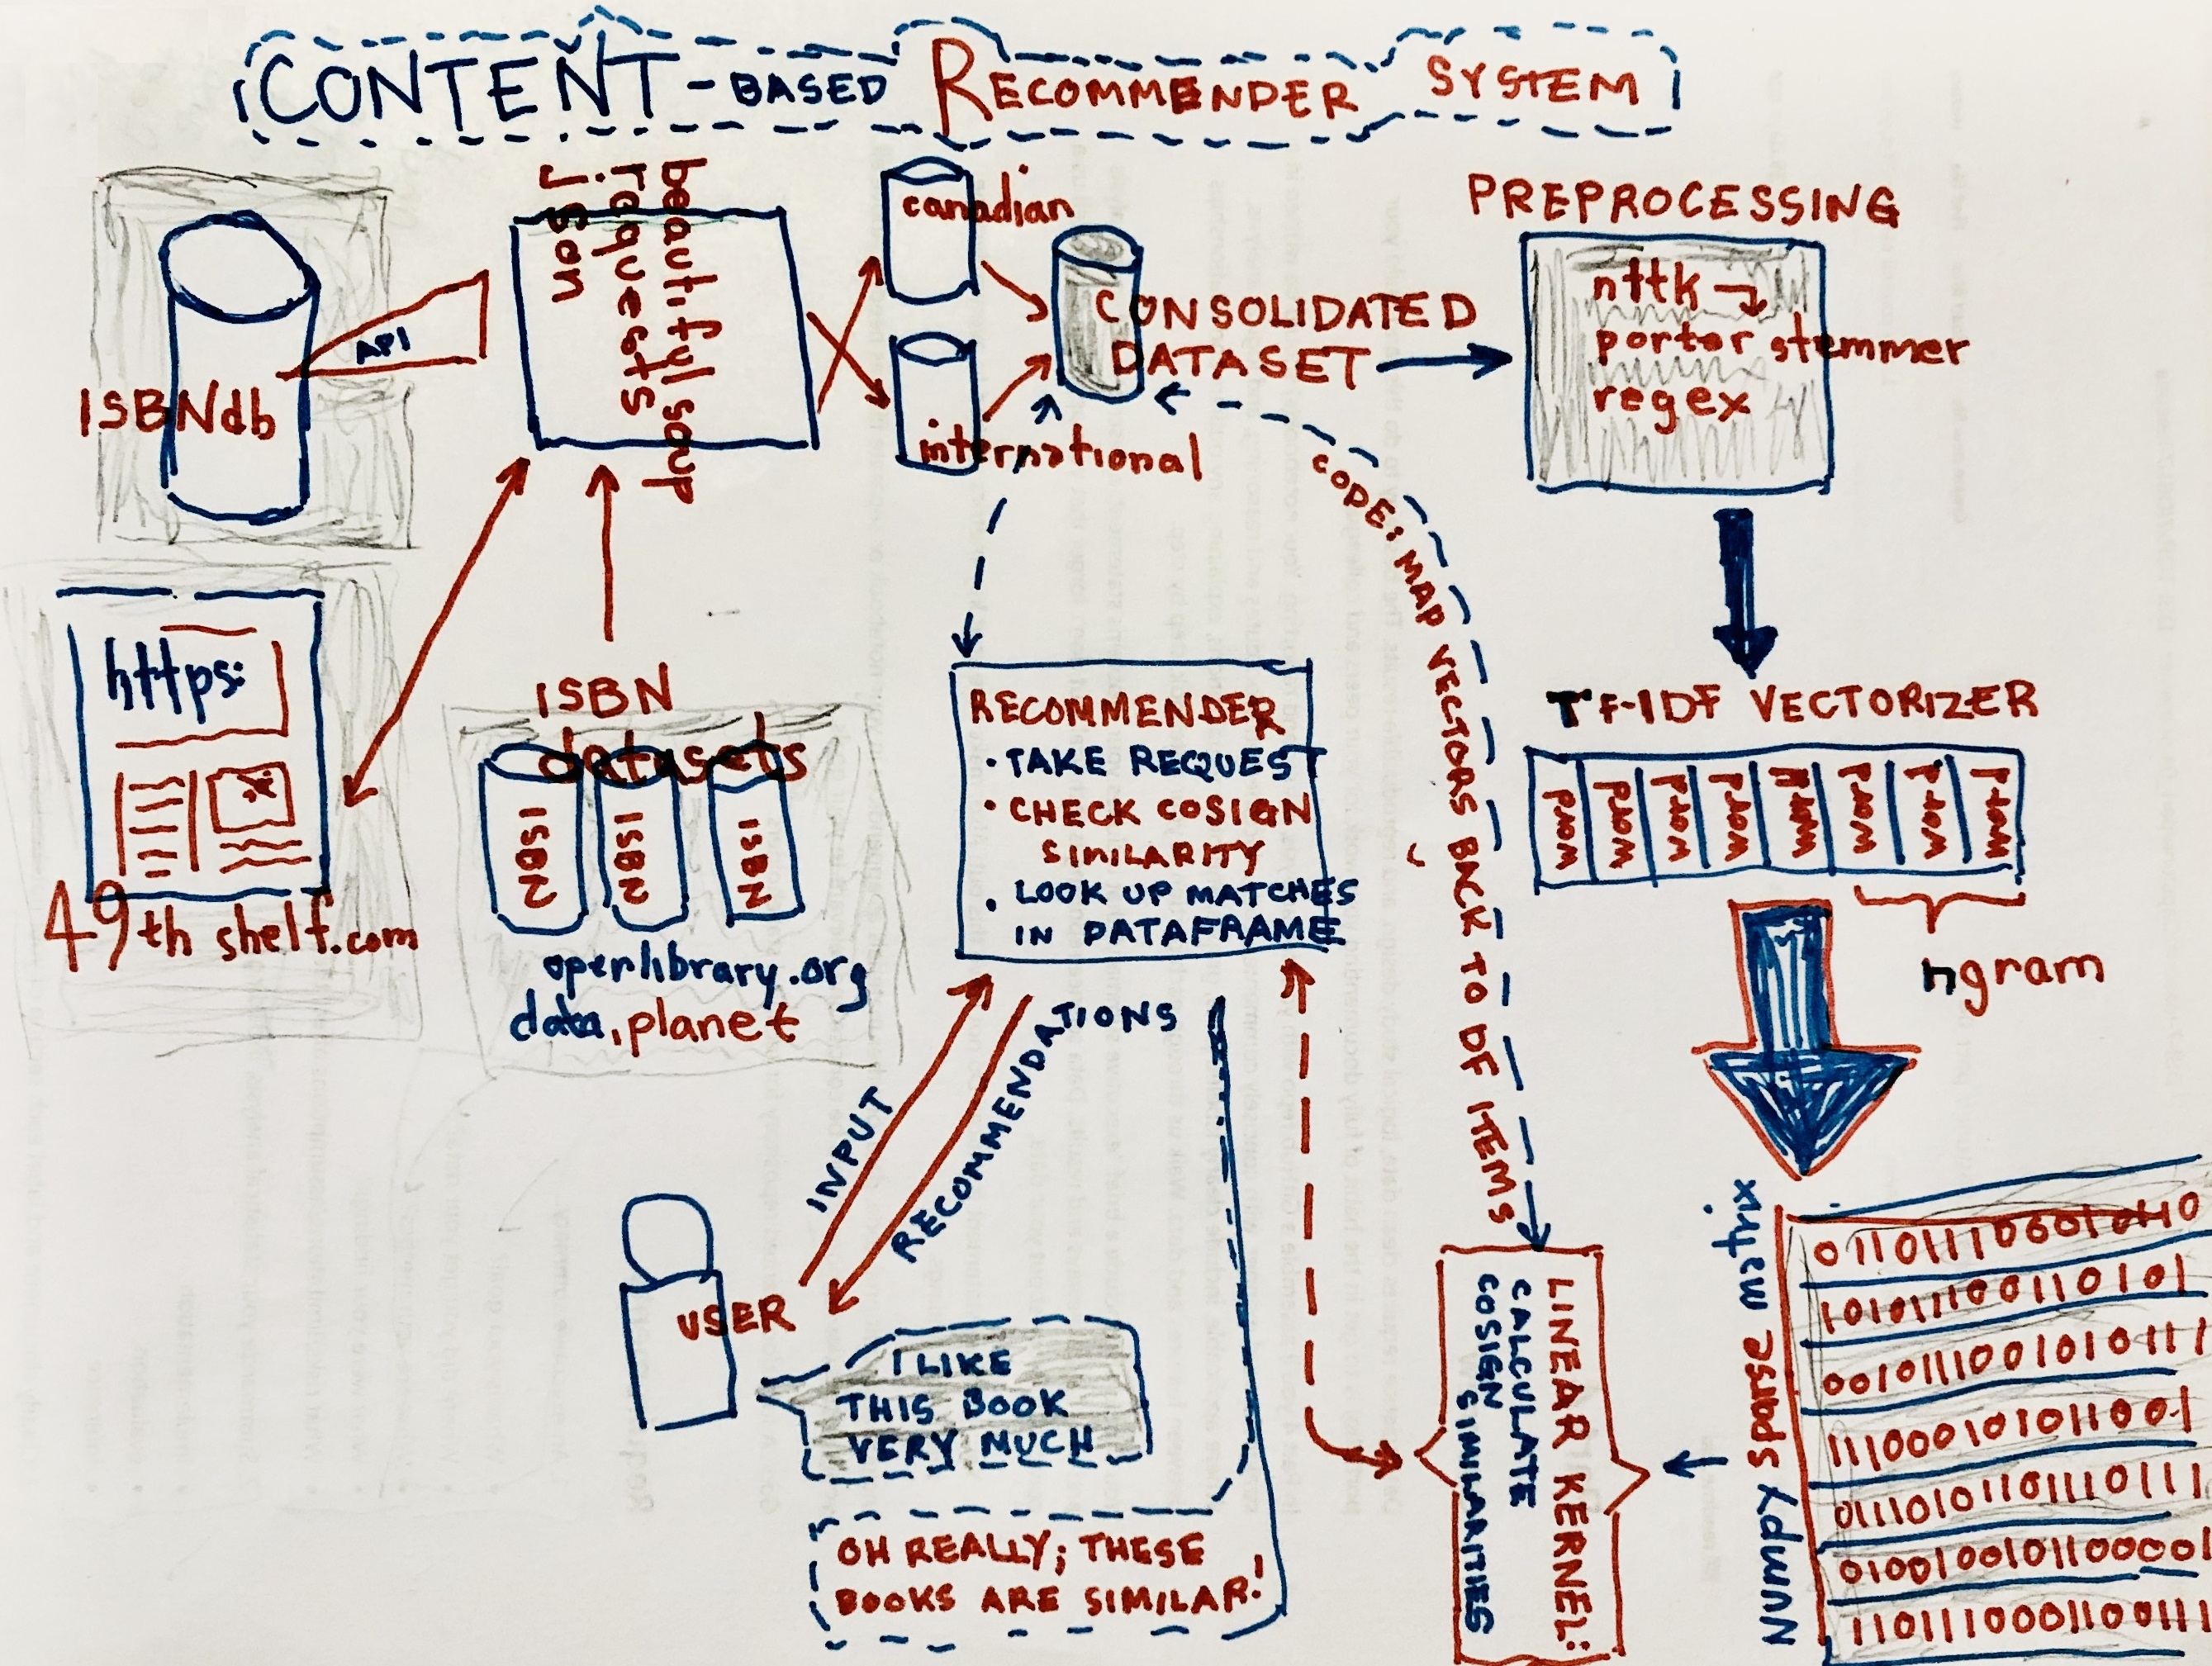 CONTENT-BASED RECOMMENDER SYSTEM
ISBNdb
API
beautifulsoup
requests
json
canadian
international
CONSOLIDATED
DATASET
PREPROCESSING
nttk
porter stemmer
regex
https:
49th shelf.com
ISBN
datasets
ISBN
ISBN
ISBN
openlibrary.org
data.planet
RECOMMENDER
· TAKE REQUEST
· CHECK COSIGN
SIMILARITY
· LOOK UP MATCHES
IN DATAFRAME
CODE: MAP VECTORS BACK TO DF ITEMS
TF-IDF VECTORIZER
word
word
word
word
word
word
word
word
ngram
INPUT
RECOMMENDATIONS
USER
I LIKE
THIS BOOK
VERY MUCH
OH REALLY; THESE
BOOKS ARE SIMILAR!
LINEAR KERNEL:
CALCULATE
COSIGN
SIMILARITIES
NUMPY sparse matrix